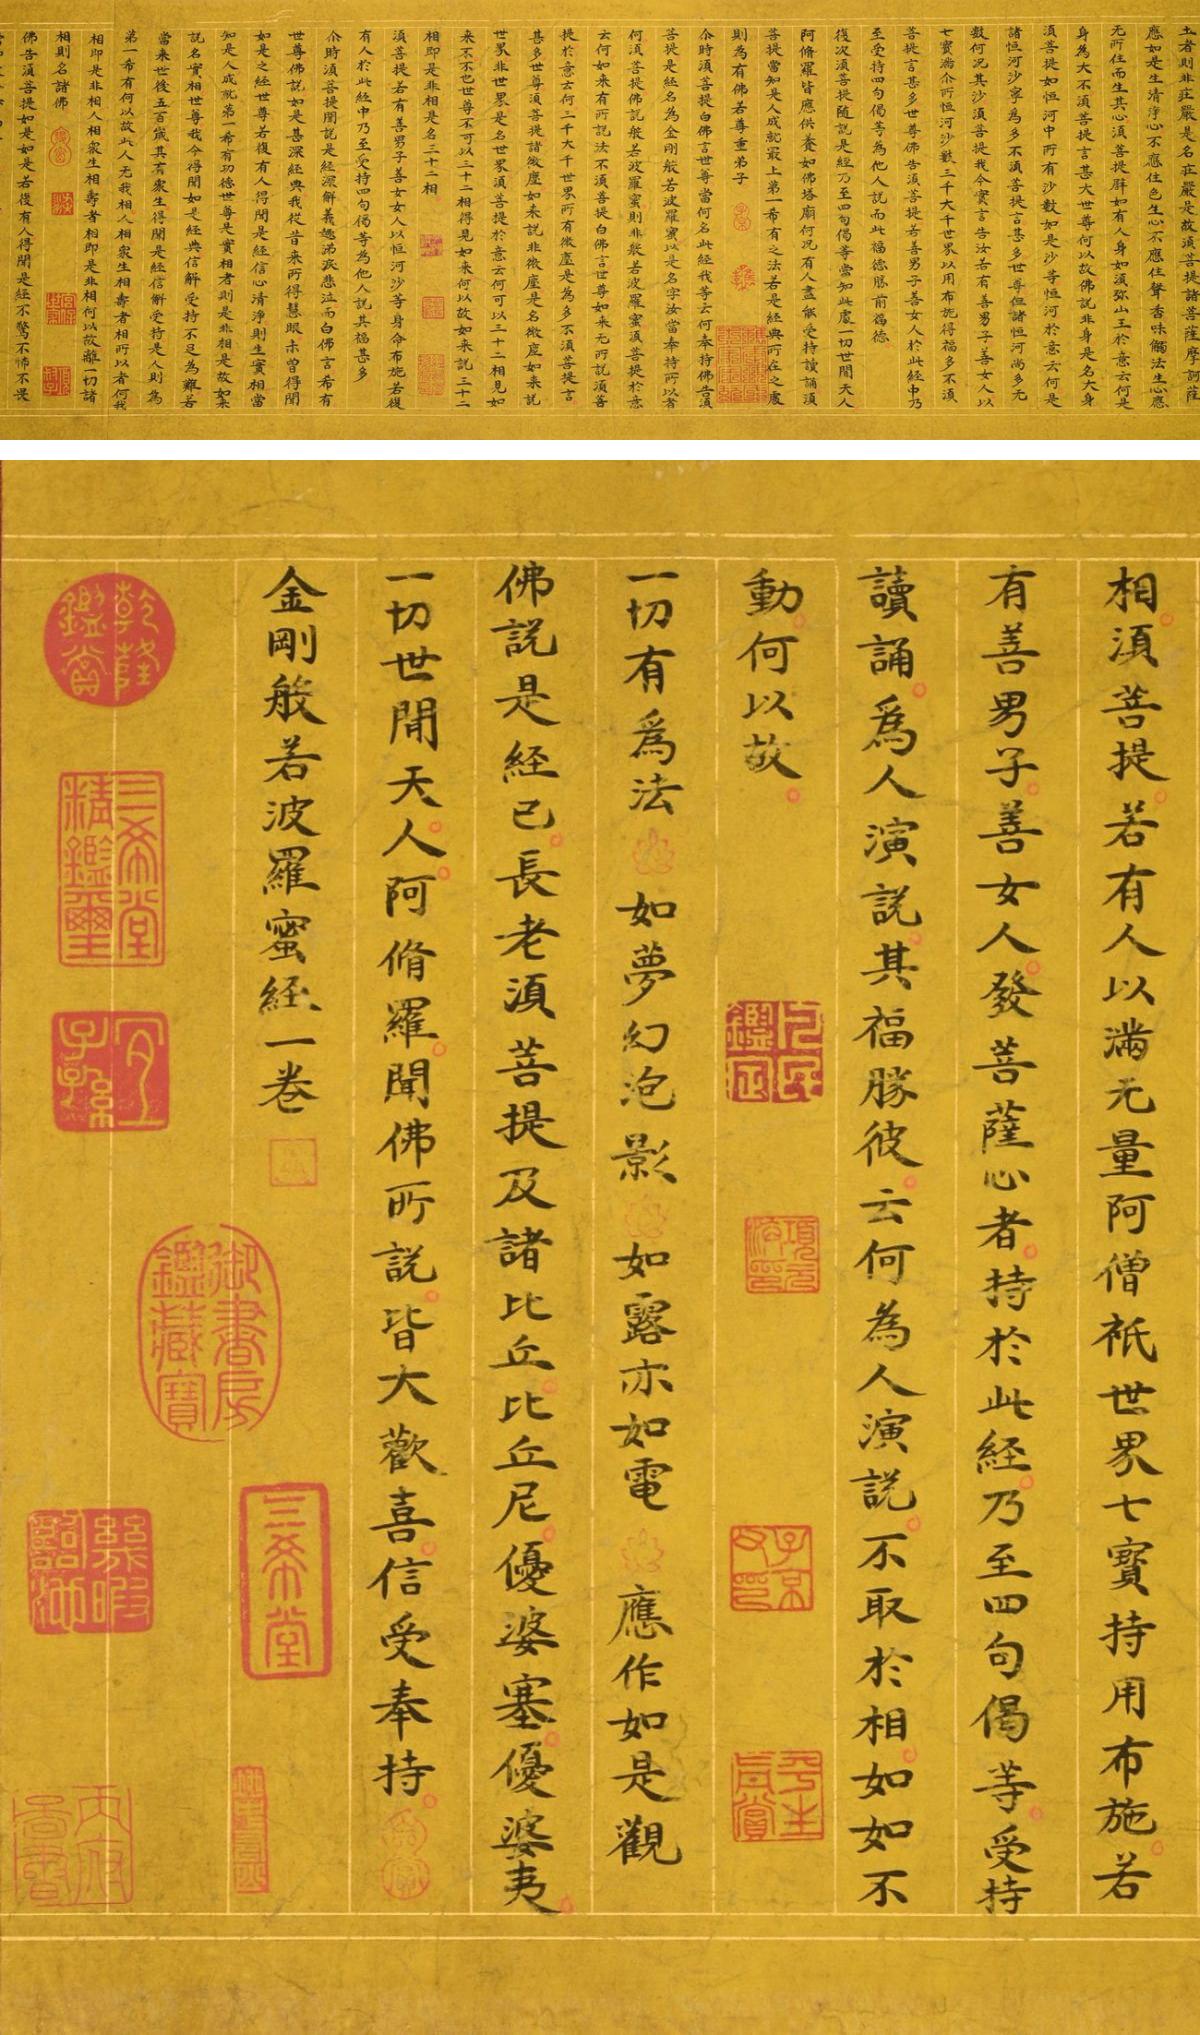 土者則非莊嚴是名莊嚴是故須菩提諸菩薩摩訶薩
應如是生清淨心不應住色生心不應住聲香味觸法生心應
无所住而生其心須菩提辟如有人身如須弥山王於意云何是
身為大不須菩提言甚大世尊何以故佛說非身是名大身
須菩提如恒河中所有沙數如是沙等恒河於意云何是
諸恒河沙寧為多不須菩提言甚多世尊但諸恒河尚多无
數何況其沙須菩提我今實言告汝若有善男子善女人以
七寶滿尒所恒河沙數三千大千世界以用布施得福多不須
菩提言甚多世尊佛告須菩提若善男子善女人於此經中乃
至受持四句偈等為他人說而此福德勝前福德
復次須菩提隨說是經乃至四句偈等當知此處一切世間天人
阿脩羅皆應供養如佛塔廟何況有人盡能受持讀誦須
菩提當知是人成就最上第一希有之法若是經典所在之處
則為有佛若尊重弟子
尒時須菩提白佛言世尊當何名此經我等云何奉持佛告須
菩提是經名為金剛般若波羅蜜以是名字汝當奉持所以者
何須菩提佛說般若波羅蜜則非般若波羅蜜須菩提於意
云何如来有所說法不須菩提白佛言世尊如来无所說須菩
提於意云何三千大千世界所有微塵是為多不須菩提言
甚多世尊須菩提諸微塵如来說非微塵是名微塵如来說
世界非世界是名世界須菩提於意云何可以三十二相見如
来不不也世尊不可以三十二相得見如来何以故如来說三十二
相即是非相是名三十二相
須菩提若有善男子善女人以恒河沙等身命布施若復
有人於此經中乃至受持四句偈等為他人說其福甚多
尒時須菩提聞說是經深解義趣涕淚悲泣而白佛言希有
世尊佛說如是甚深經典我從昔来所得慧眼未曾得聞
如是之經世尊若復有人得聞是經信心清淨則生實相當
知是人成就第一希有功德世尊是實相者則是非相是故如来
說名實相世尊我今得聞如是經典信解受持不足為難若
當来世後五百歲其有衆生得聞是經信解受持是人則為
第一希有何以故此人无我相人相衆生相壽者相所以者何我
相即是非相人相衆生相壽者相即是非相何以故離一切諸
相則名諸佛
佛告須菩提如是如是若復有人得聞是經不驚不怖不畏
相須菩提若有人以滿无量阿僧祇世界七寶持用布施若
有善男子善女人發菩薩心者持於此経乃至四句偈等受持
讀誦爲人演說其福勝彼云何為人演說不取於相如如不
動何以故
一切有爲法 如夢幻泡影 如露亦如電 應作如是觀
佛說是経已長老須菩提及諸比丘比丘尼優婆塞優婆夷
一切世間天人阿脩羅聞佛所說皆大歡喜信受奉持
金剛般若波羅蜜経一卷
乾隆鑑賞
三希堂精鑑璽
宜子孫
御書房鑑藏寶
三希堂
幾暇臨池
項元汴印
子京父印
平生真賞